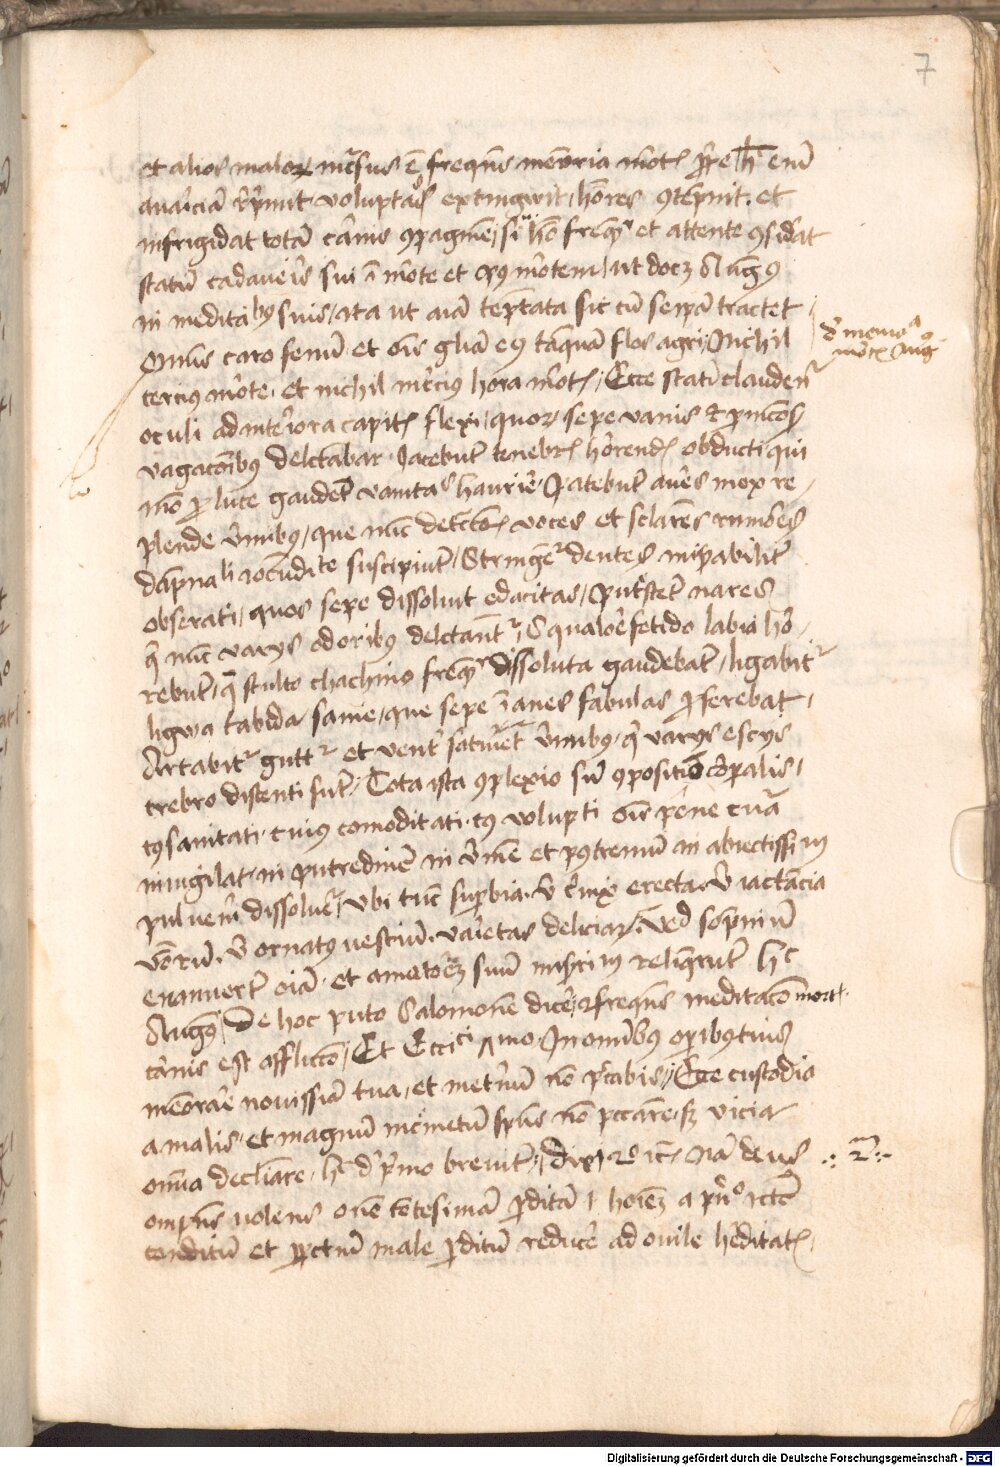 7
et alios malorum incursus est frequens memoria mortis hec enim
avariciam reprimit voluptates extingwit honores contempnit et
infrigidat totam carnis compaginem si homo frequenter et attente consideret
statum cadaveris sui in morte et post mortem ut docet Augus
in meditationibus suis ita ut animam temptata sic cum seipsam tractet
Omnis caro fenum et omnis gloria eius tamquam flos agri Nichil
cercius morte et nichil incercius hora mortis Ecce statim claudentur
oculi ad interiora capitis flexi quorum sepe vanis et perniciosis
vagacionibus delectabar Iacebunt tenebris horrendis obducti qui
modo pro luce gaudent vanitates haurire Patebunt aures mox re
plende vermibus que nunc detractorum voces et seculares rumores
dampnabili iocunditate suscipiunt Stringentur dentes miserabiliter
obserati quos sepe dissoluit edacitas Putrescent nares
que nunc varys odoribus delectantur Squalore fetido labia hor
rebunt que stulto chachino frequenter dissoluta gaudebant ligabitur
ligwa tabida sanie que sepe inanes fabulas proferebat
Artabitur guttur et venter saturetur vermibus qui varys escys
crebro distenti sunt Tota ista complexio sive compositio corporalis
cuius sanitati cuius comoditati cuius voluptati omnis pene cura
invigilat in putredinem in vermem et postremum in abiectissimum
pulverem dissoluetur Ubi tunc superbia ubi cervix erecta ubi iactancia
verborum ubi ornatus vestium varietas deliciarum Velud sompnium
evanuerunt omnia et amatorem suum miserum reliquerunt hec
Augus De hoc puto Salomonem dicere frequens meditacio mortis
carnis est afflictio Et Ecci 7mo In omnibus operibus tuis
memorare novissima tua et in eternum non peccabis Ecce custodia
a malis et magnum incrementum spiritus non peccare sed vicia
omnia declinare hec de primo breviter Dixi 2o etc Nam deus
omnipotens volens ovem centesimam perditam id est hominem a principio recte
conditum et peccatum male perditum reducere ad ovile hereditatis
de memoria
mortis Aug
2m
Digitalisierung gefördert durch die Deutsche Forschungsgemeinschaft - DFG